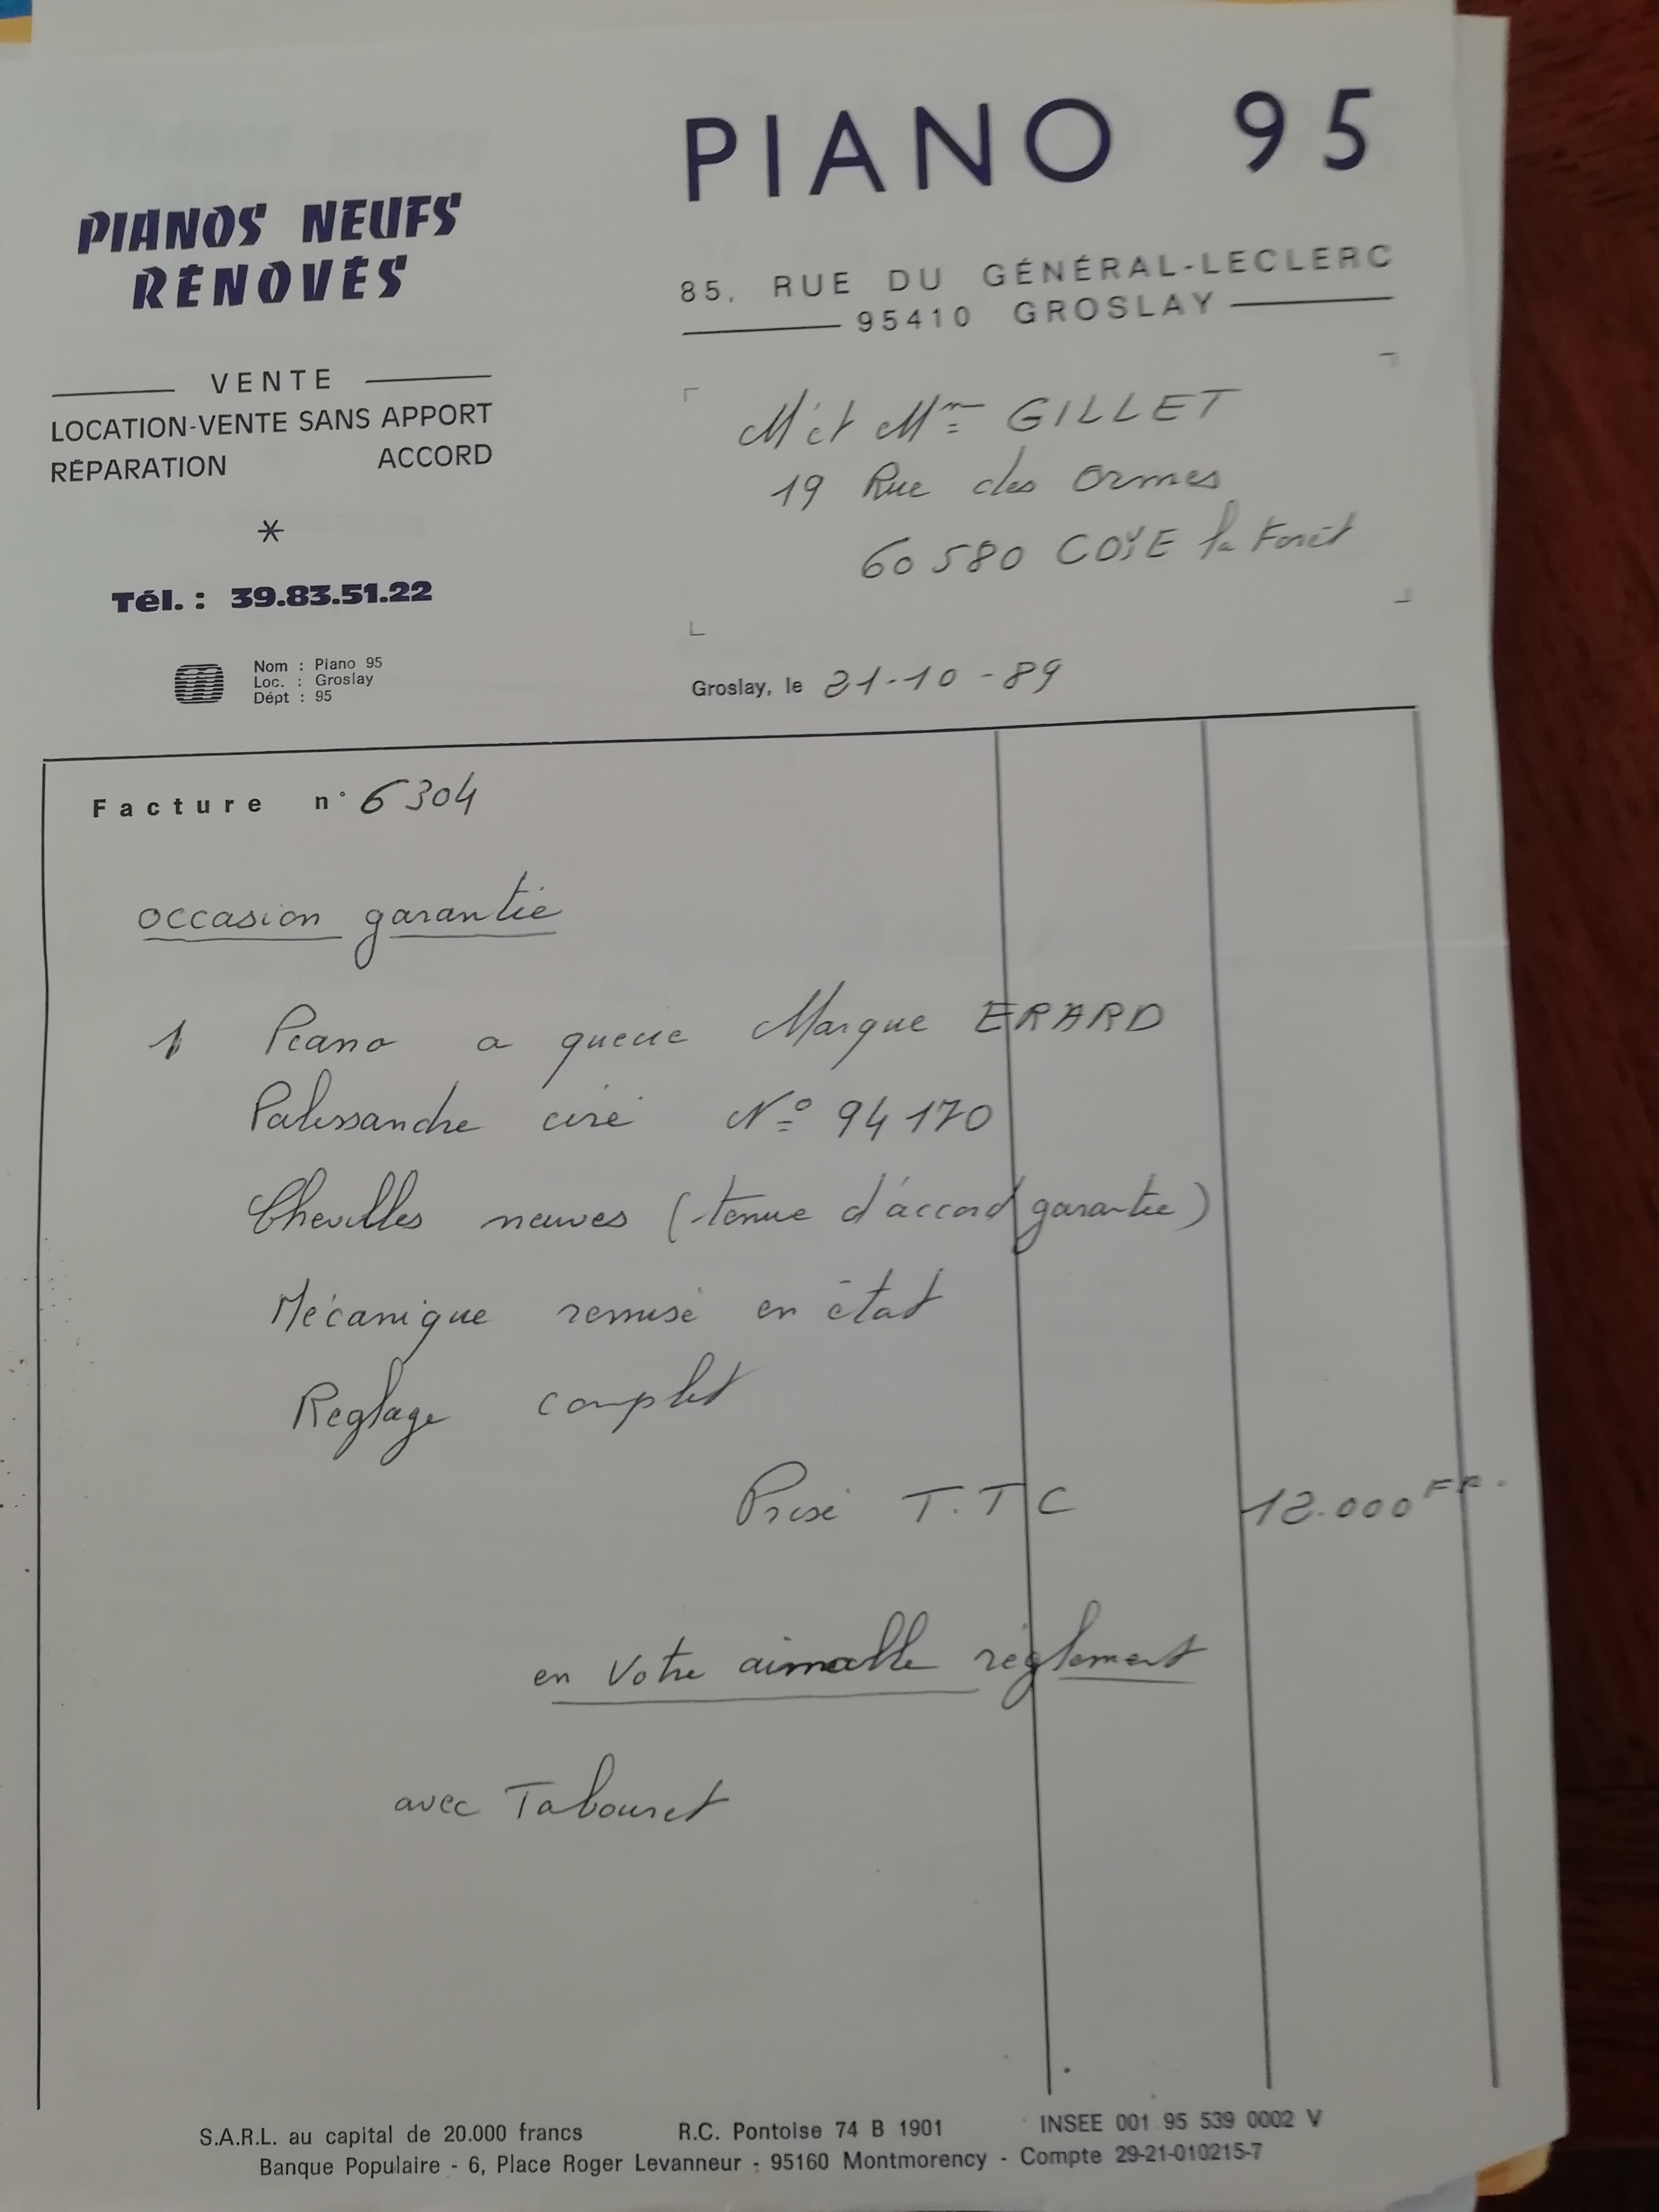 PIANO 95
85, RUE DU GÉNÉRAL-LECLERC
95410 GROSLAY
PIANOS NEUFS
RÉNOVÉS
VENTE
LOCATION-VENTE SANS APPORT
RÉPARATION ACCORD
*
Tél. : 39.83.51.22
Nom : Piano 95
Loc. : Groslay
Dépt : 95
Mr et Mme GILLET
19 Rue des Ormes
60580 COYE la Forêt
Groslay, le 31-10-89
Facture n° 6304
occasion garantie
1 Piano a queue Marque ERARD
Palissandre ciré N° 94170
Chevilles neuves (tenue d'accord garantie)
Mécanique remise en état
Reglage complet
Prix T.T.C 12.000 FF.
en Votre aimable règlement
avec Tabouret
S.A.R.L. au capital de 20.000 francs R.C. Pontoise 74 B 1901 INSEE 001 95 539 0002 V
Banque Populaire - 6, Place Roger Levanneur - 95160 Montmorency - Compte 29-21-010215-7